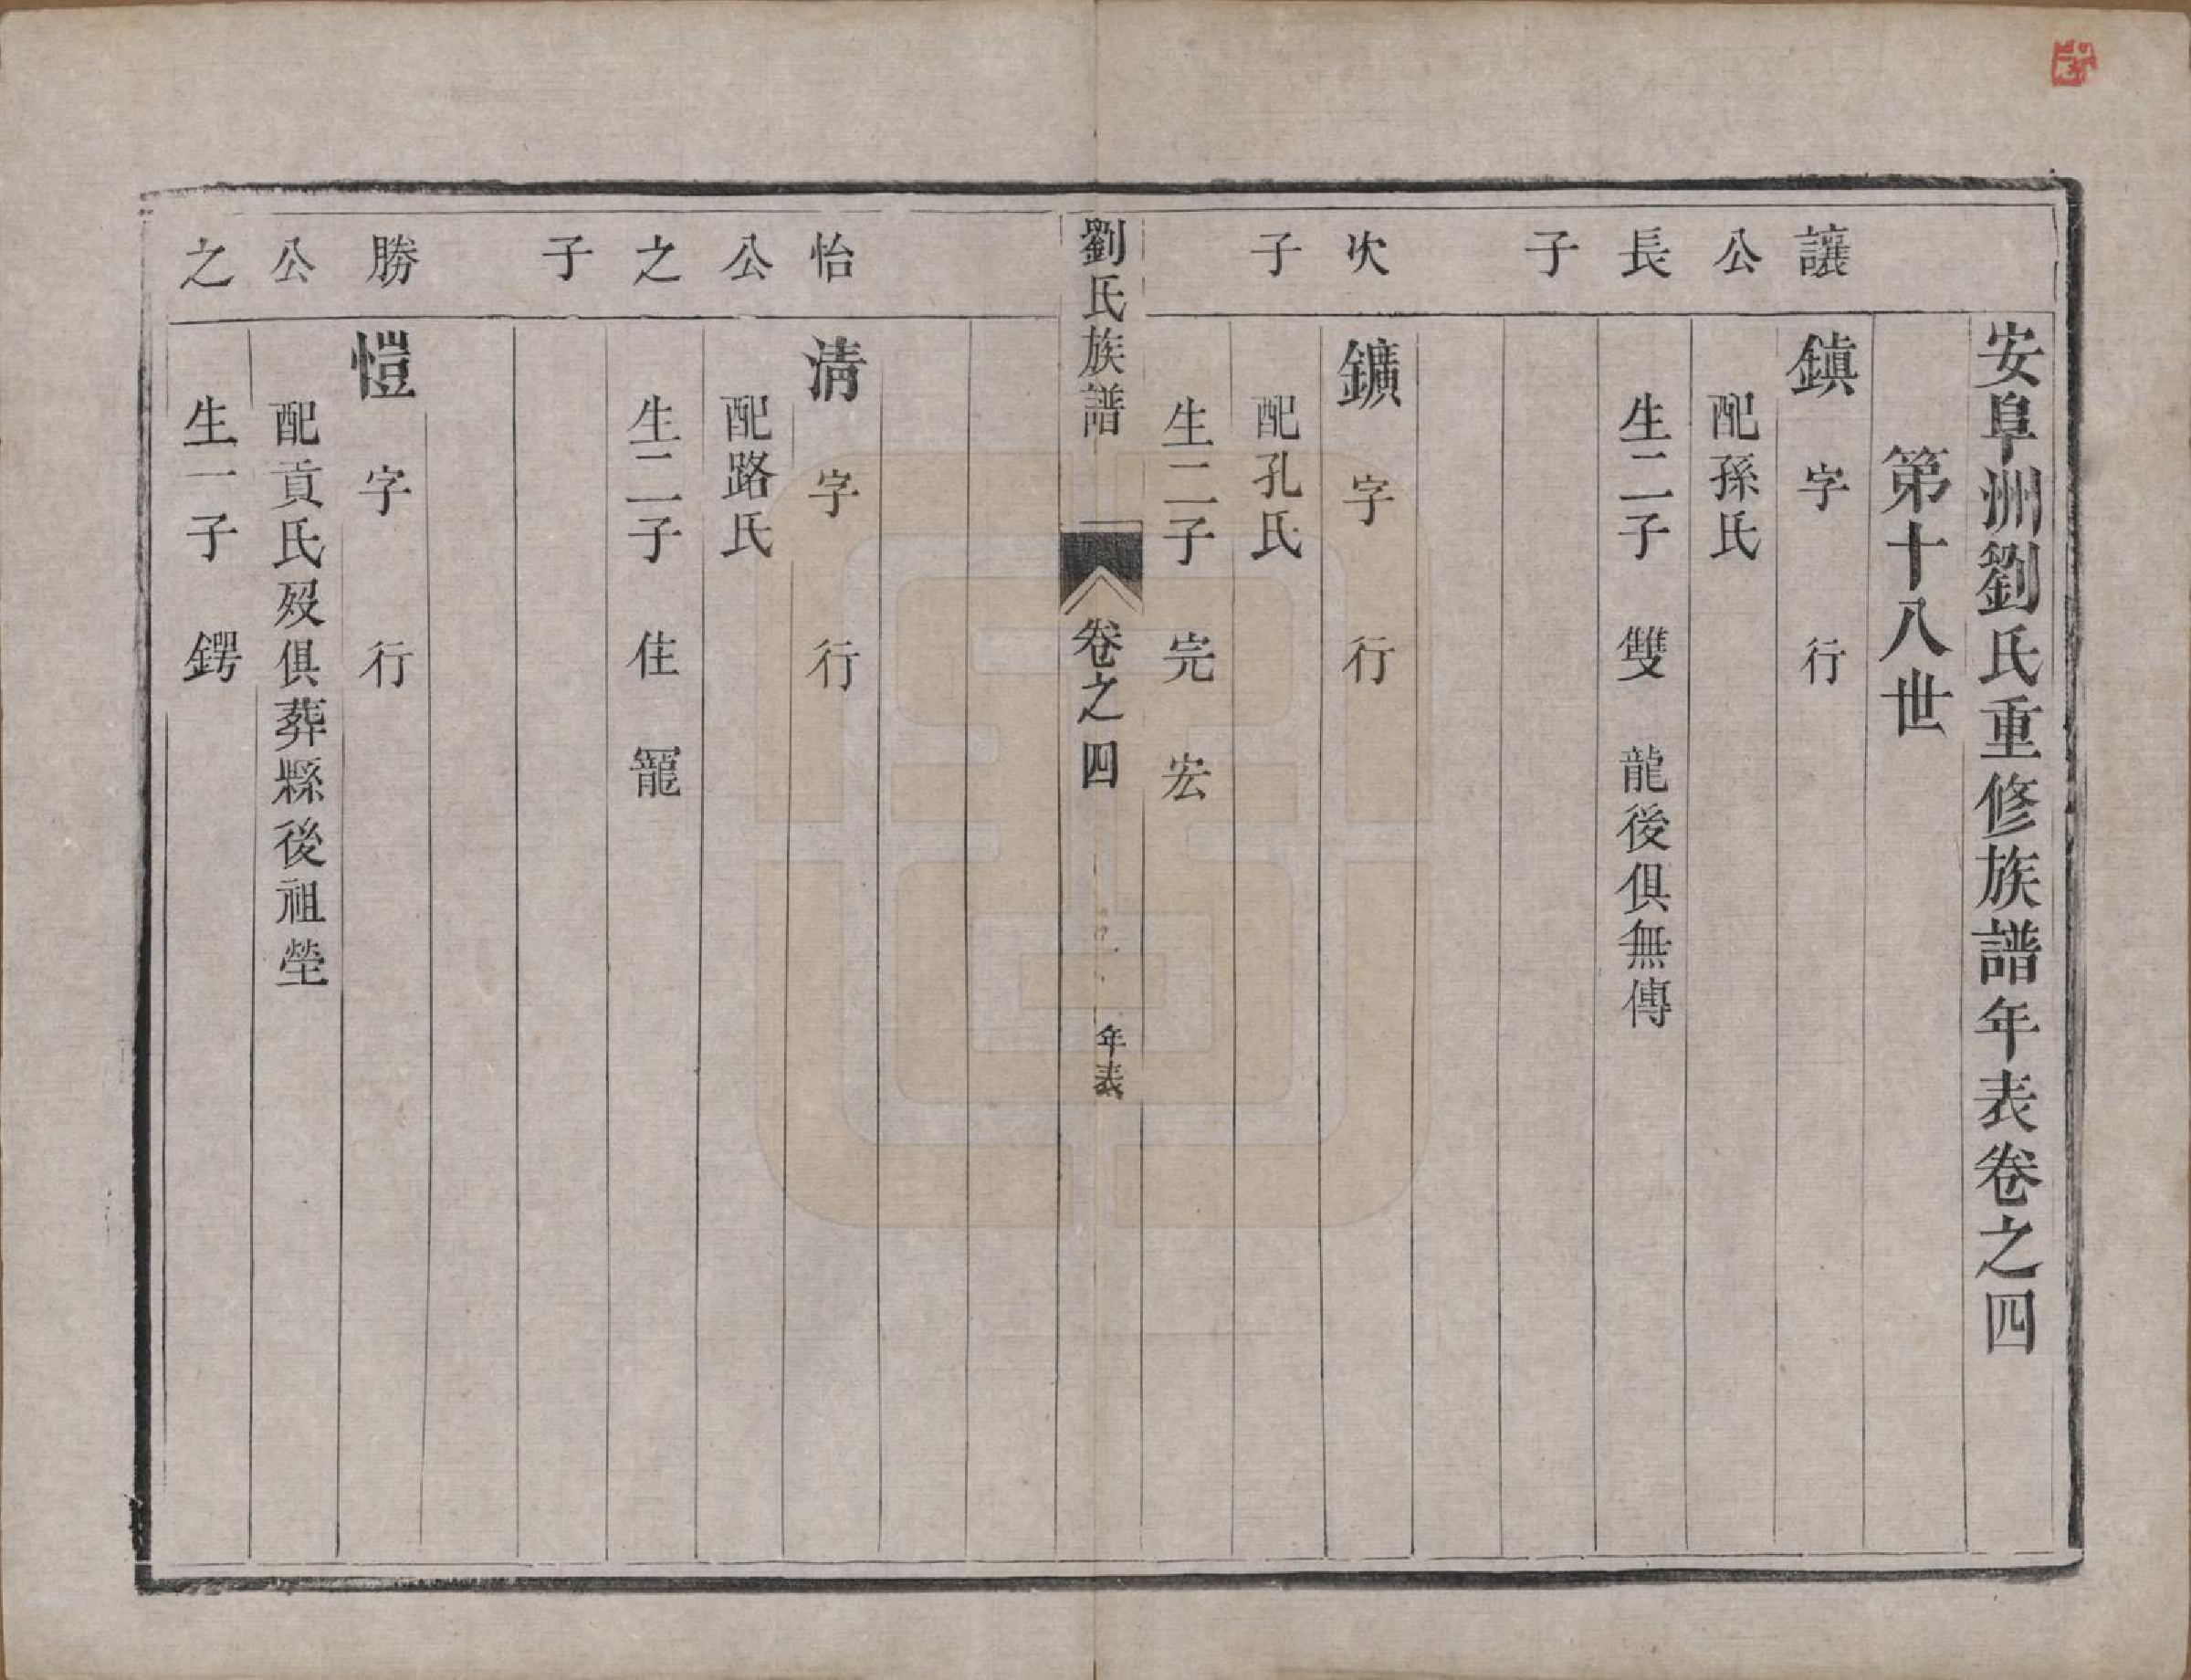 安阜洲劉氏重修族譜年表卷之四
第十八世
讓 鎮 字 行
公 配孫氏
長 生二子 雙 龍後俱無傳
子
次 鑛 字 行
子 配孔氏
生二子 完 宏
劉氏族譜 卷之四 年表
怡 淸 字 行
公 配路氏
之 生二子 住 寵
子
勝 愷 字 行
公 配貢氏歿俱葬縣後祖塋
之 生一子 鍔